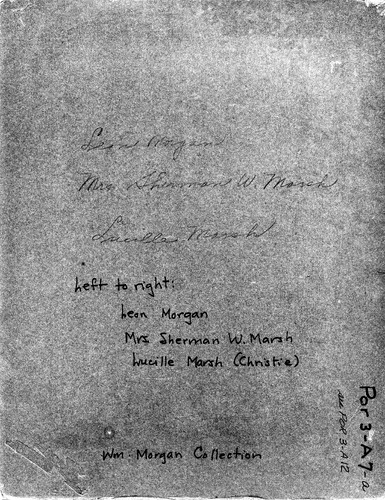 Leon Morgan
Mrs Sherman W. Marsh
Lucille Marsh
Left to right:
Leon Morgan
Mrs Sherman W. Marsh
Lucille Marsh (Christie)
Wm. Morgan Collection
Por 3-A7-a
POR 3-A12